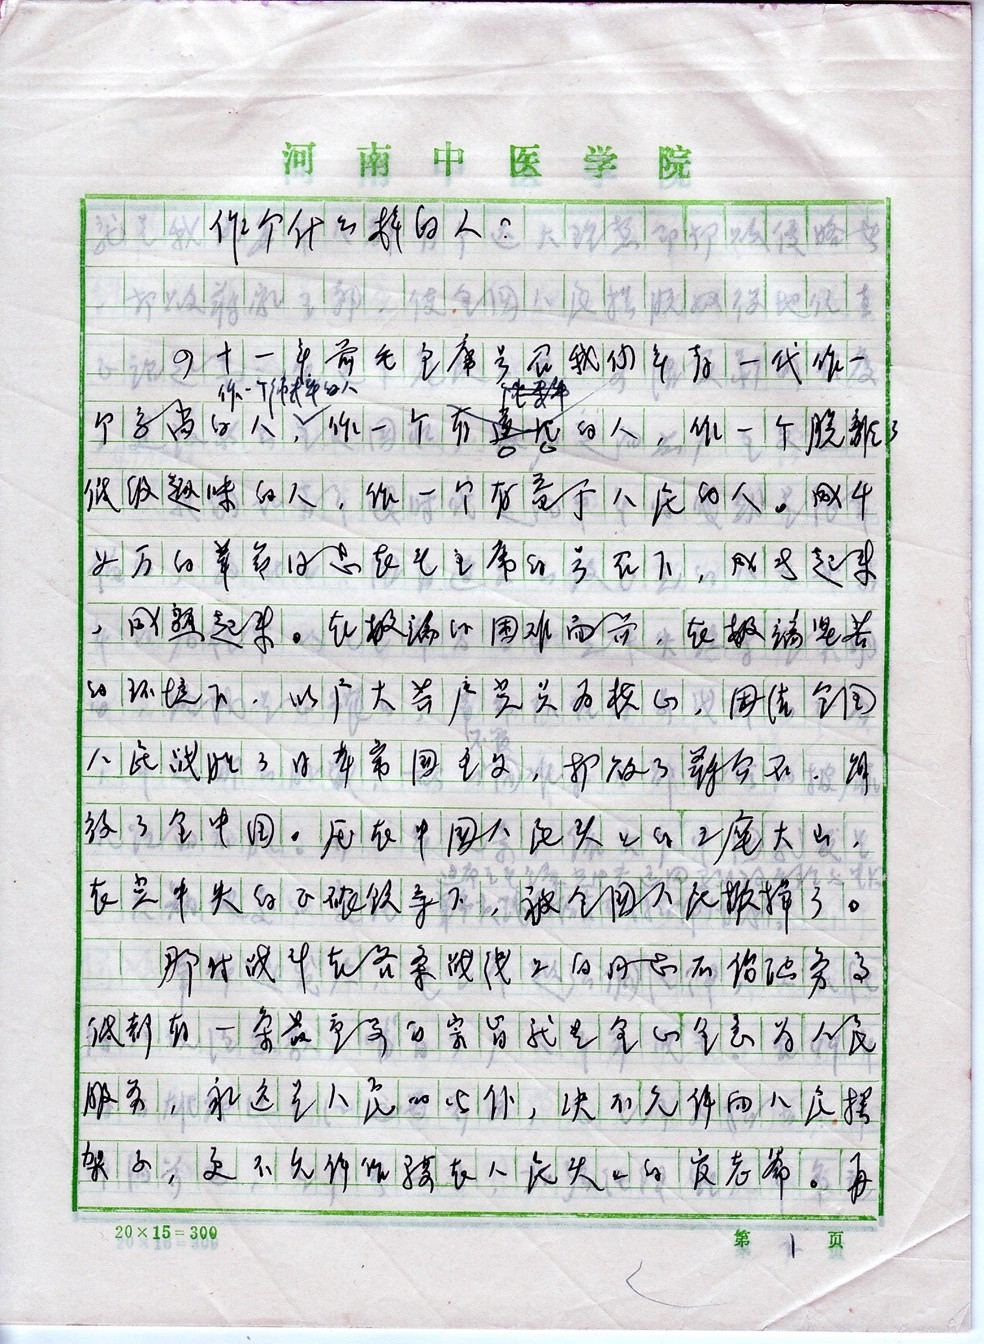 河南中医学院
作个什么样的人？
四十一年前毛主席号召我们年青一代作一
作一个纯粹的人
个高尚的人，作一个有道德的人，作一个脱离了
低级趣味的人，作一个有益于人民的人。成千
上万的革命同志在毛主席的号召下，成长起来
，成熟起来。在极端的困难面前，在极端艰苦
的环境下，以广大共产党员为核心，团结全国
人民战胜了日本帝国主义，打败了蒋介石，解
放了全中国。压在中国人民头上的三座大山，
在党中央的正确领导下，被全国人民搬掉了。
那时战斗在各条战线上的同志不论职务高
低都有一条最重要的宗旨就是全心全意为人民
服务，永远是人民的公仆，决不允许向人民摆
架子，更不允许作骑在人民头上的官老爷。再
20×15=300
第1页